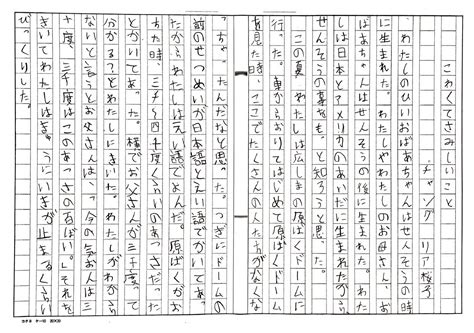 こわくてさみしいこと
チャング　リア桜子
わたしのひいおばあちゃんは、せんそうの時
に生まれた。わたしやわたしのお母さん、お
ばあちゃんはせんそうの後に生まれた。わた
しは日本とアメリカのあいだに生まれたから
せんそうの事をもっと知ろうと思った。
この夏、わたしは広しまの原ばくドームに
行った。車からおりてはじめて原ばくドーム
を見た時、ここでたくさんの人たちがなくな
っちゃったんだなと思った。つぎにドームの
前のせつめいが日本語とえい語でかいてあっ
たから、わたしはえい語でよんだ。原ばくがお
ちた時、三千～四千度くらいのあつさだった
とかいてあった。横でお父さんが三千度って
分かる？とわたしにきいた。わたしがわから
ないと言うとお父さんは、「今の気おんは三
十度、三千度はこのあつさの百ばい。」それを
きいてわたしは、きゅうにいきが止まるくらい
びっくりした。
コクヨ　ケー10　20×20